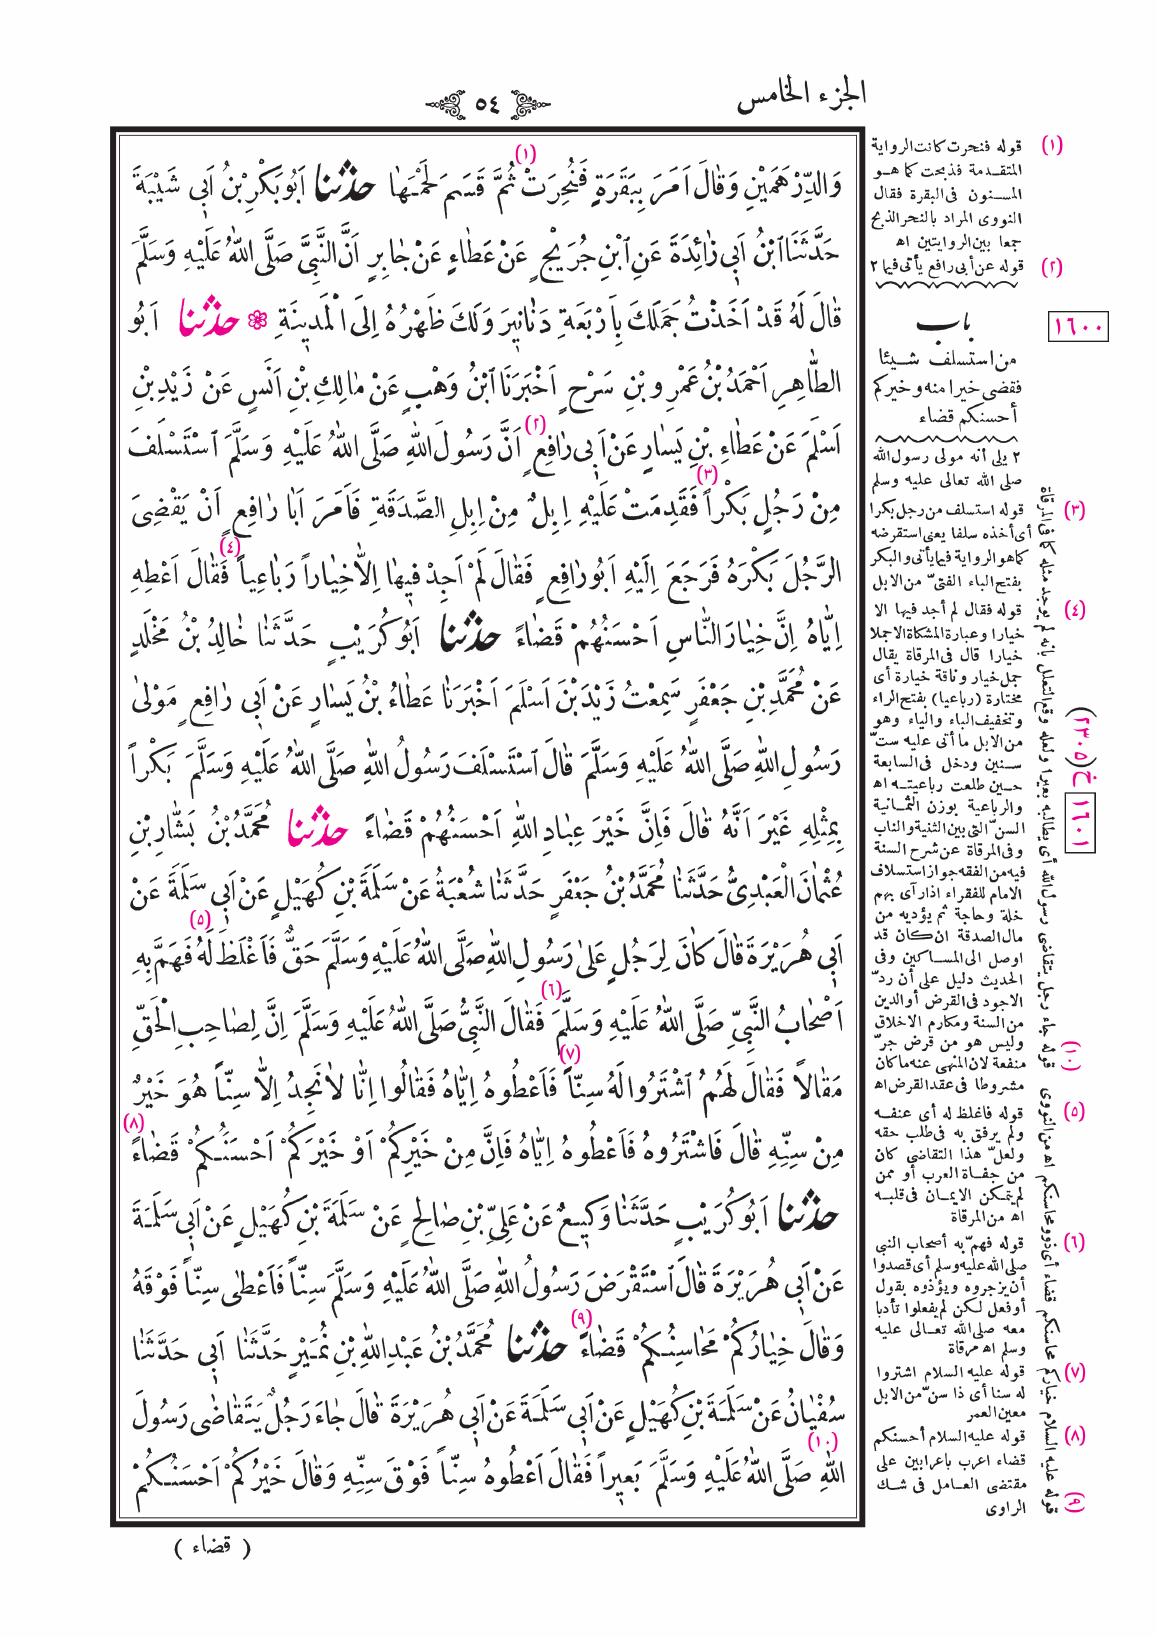 الجزء الخامس
٥٤
وَالدِّرْهَمَيْنِ وَقَالَ اَمَرَ بِبَقَرَةٍ فَنُحِرَتْ (١) ثُمَّ قَسَمَ لَحْمَهَا حدثنا اَبُو بَكْرِ بْنُ اَبِي شَيْبَةَ
حَدَّثَنَا ابْنُ اَبِي زَائِدَةَ عَنِ ابْنِ جُرَيْجٍ عَنْ عَطَاءٍ عَنْ جَابِرٍ اَنَّ النَّبِيَّ صَلَّى اللّٰهُ عَلَيْهِ وَسَلَّمَ
قَالَ لَهُ قَدْ اَخَذْتُ جَمَلَكَ بِاَرْبَعَةِ دَنَانِيرَ وَلَكَ ظَهْرُهُ اِلَى الْمَدِينَةِ ❁ حدثنا اَبُو
الطَّاهِرِ اَحْمَدُ بْنُ عَمْرِو بْنِ سَرْحٍ اَخْبَرَنَا ابْنُ وَهْبٍ عَنْ مَالِكِ بْنِ اَنَسٍ عَنْ زَيْدِ بْنِ
اَسْلَمَ عَنْ عَطَاءِ بْنِ يَسَارٍ عَنْ اَبِي رَافِعٍ (٢) اَنَّ رَسُولَ اللّٰهِ صَلَّى اللّٰهُ عَلَيْهِ وَسَلَّمَ اسْتَسْلَفَ
مِنْ رَجُلٍ بَكْراً (٣) فَقَدِمَتْ عَلَيْهِ اِبِلٌ مِنْ اِبِلِ الصَّدَقَةِ فَاَمَرَ اَبَا رَافِعٍ اَنْ يَقْضِىَ
الرَّجُلَ بَكْرَهُ فَرَجَعَ اِلَيْهِ اَبُو رَافِعٍ فَقَالَ لَمْ اَجِدْ فِيهَا اِلَّا خِيَاراً رَبَاعِياً (٤) فَقَالَ اَعْطِهِ
اِيَّاهُ اِنَّ خِيَارَ النَّاسِ اَحْسَنُهُمْ قَضَاءً حدثنا اَبُو كُرَيْبٍ حَدَّثَنَا خَالِدُ بْنُ مَخْلَدٍ
عَنْ مُحَمَّدِ بْنِ جَعْفَرٍ سَمِعْتُ زَيْدَ بْنَ اَسْلَمَ اَخْبَرَنَا عَطَاءُ بْنُ يَسَارٍ عَنْ اَبِي رَافِعٍ مَوْلَى
رَسُولِ اللّٰهِ صَلَّى اللّٰهُ عَلَيْهِ وَسَلَّمَ قَالَ اسْتَسْلَفَ رَسُولُ اللّٰهِ صَلَّى اللّٰهُ عَلَيْهِ وَسَلَّمَ بَكْراً
بِمِثْلِهِ غَيْرَ اَنَّهُ قَالَ فَاِنَّ خَيْرَ عِبَادِ اللّٰهِ اَحْسَنُهُمْ قَضَاءً حدثنا مُحَمَّدُ بْنُ بَشَّارِ بْنِ
عُثْمَانَ الْعَبْدِىُّ حَدَّثَنَا مُحَمَّدُ بْنُ جَعْفَرٍ حَدَّثَنَا شُعْبَةُ عَنْ سَلَمَةَ بْنِ كُهَيْلٍ عَنْ اَبِي سَلَمَةَ عَنْ
اَبِي هُرَيْرَةَ قَالَ كَانَ لِرَجُلٍ عَلَى رَسُولِ اللّٰهِ صَلَّى اللّٰهُ عَلَيْهِ وَسَلَّمَ حَقٌّ فَاَغْلَظَ (٥) لَهُ فَهَمَّ بِهِ
اَصْحَابُ النَّبِيِّ صَلَّى اللّٰهُ عَلَيْهِ وَسَلَّمَ (٦) فَقَالَ النَّبِيُّ صَلَّى اللّٰهُ عَلَيْهِ وَسَلَّمَ اِنَّ لِصَاحِبِ الْحَقِّ
مَقَالاً فَقَالَ لَهُمُ اشْتَرُوا لَهُ سِنّاً (٧) فَاَعْطُوهُ اِيَّاهُ فَقَالُوا اِنَّا لَا نَجِدُ اِلَّا سِنّاً هُوَ خَيْرٌ
مِنْ سِنِّهِ قَالَ فَاشْتَرُوهُ فَاَعْطُوهُ اِيَّاهُ فَاِنَّ مِنْ خَيْرِكُمْ اَوْ خَيْرَكُمْ اَحْسَنُكُمْ قَضَاءً (٨)
حدثنا اَبُو كُرَيْبٍ حَدَّثَنَا وَكِيعٌ عَنْ عَلِيِّ بْنِ صَالِحٍ عَنْ سَلَمَةَ بْنِ كُهَيْلٍ عَنْ اَبِي سَلَمَةَ
عَنْ اَبِي هُرَيْرَةَ قَالَ اسْتَقْرَضَ رَسُولُ اللّٰهِ صَلَّى اللّٰهُ عَلَيْهِ وَسَلَّمَ سِنّاً فَاَعْطٰى سِنّاً فَوْقَهُ
وَقَالَ خِيَارُكُمْ مَحَاسِنُكُمْ قَضَاءً (٩) حدثنا مُحَمَّدُ بْنُ عَبْدِ اللّٰهِ بْنِ نُمَيْرٍ حَدَّثَنَا اَبِي حَدَّثَنَا
سُفْيَانُ عَنْ سَلَمَةَ بْنِ كُهَيْلٍ عَنْ اَبِي سَلَمَةَ عَنْ اَبِي هُرَيْرَةَ قَالَ جَاءَ رَجُلٌ يَتَقَاضَى رَسُولَ
اللّٰهِ (١٠) صَلَّى اللّٰهُ عَلَيْهِ وَسَلَّمَ بَعِيراً فَقَالَ اَعْطُوهُ سِنّاً فَوْقَ سِنِّهِ وَقَالَ خَيْرُكُمْ اَحْسَنُكُمْ
( قضاء )
(١) قوله فنحرت كانت الرواية
المتقدمة فذبحت كما هو
المسنون فى البقرة فقال
النووى المراد بالنحر الذبح
جمعا بين الروايتين اه
(٢) قوله عن أبى رافع يأتى فيما ٢
١٦٠٠
باب
من استسلف شيئا
فقضى خيرا منه وخيركم
أحسنكم قضاء
٢ يلى أنه مولى رسول الله
صلى الله تعالى عليه وسلم
(٣) قوله استسلف من رجل بكرا
أى أخذه سلفا يعنى استقرضه
كما هو الرواية فيما يأتى والبكر
بفتح الباء الفتىّ من الابل
(٤) قوله فقال لم أجد فيها الا
خيارا وعبارة المشكاة الاجملا
خيارا قال فى المرقاة يقال
جمل خيار وناقة خيارة أى
مختارة (رباعيا) بفتح الراء
وتخفيف الباء والياء وهو
من الابل ما أتى عليه ستّ
سنين ودخل فى السابعة
حين طلعت رباعيته اه
والرباعية بوزن الثمانية
السنّ التى بين الثنية والناب
وفى المرقاة عن شرح السنة
فيه من الفقه جواز استسلاف
الامام للفقراء اذا رأى بهم
خلة وحاجة ثم يؤديه من
مال الصدقة ان كان قد
اوصل الى المساكين وفى
الحديث دليل على أن ردّ
الاجود فى القرض أو الدين
من السنة ومكارم الاخلاق
وليس هو من قرض جرّ
منفعة لان المنهى عنه ما كان
مشروطا فى عقد القرض اه
(٥) قوله فاغلظ له أى عنفه
ولم يرفق به فى طلب حقه
ولعلّ هذا التقاضى كان
من جفاة العرب أو ممن
لم يتمكن الايمان فى قلبه
اه من المرقاة
(٦) قوله فهمّ به أصحاب النبي
صلى الله عليه وسلم أى قصدوا
أن يزجروه ويؤذوه بقول
أو فعل لكن لم يفعلوا تأدبا
معه صلى الله تعالى عليه
وسلم اه مرقاة
(٧) قوله عليه السلام اشتروا
له سنا أى ذا سنّ من الابل
معين العمر
(٨) قوله عليه السلام أحسنكم
قضاء اعرب باعرابين على
مقتضى العامل فى شك
الراوى
(٩) قوله عليه السلام خياركم محاسنكم قضاء أى ذوو محاسنكم اه من النووى
(١٠) قوله جاء رجل يتقاضى رسول الله أى يطالبه بعيرا ولعله وقع التعلل بأنه لم يوجد مثله كما فى المرقاة
خ (٢٣٠٥)
١٦٠١